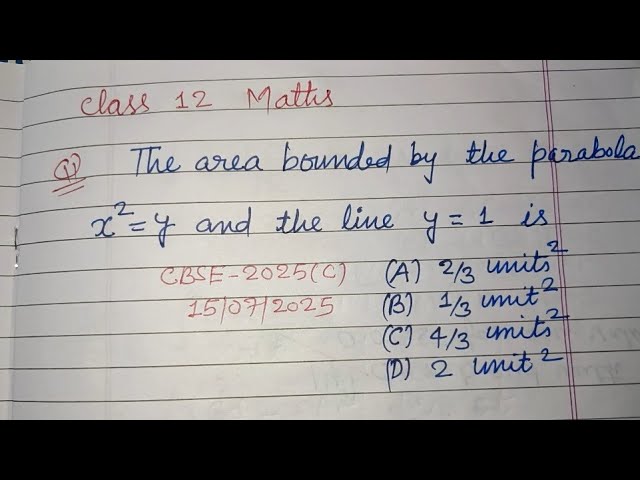 Class 12 Maths
Q) The area bounded by the parabola
x²=y and the line y=1 is
CBSE-2025(C) (A) 2/3 units²
15/07/2025 (B) 1/3 unit²
(C) 4/3 units²
(D) 2 unit²